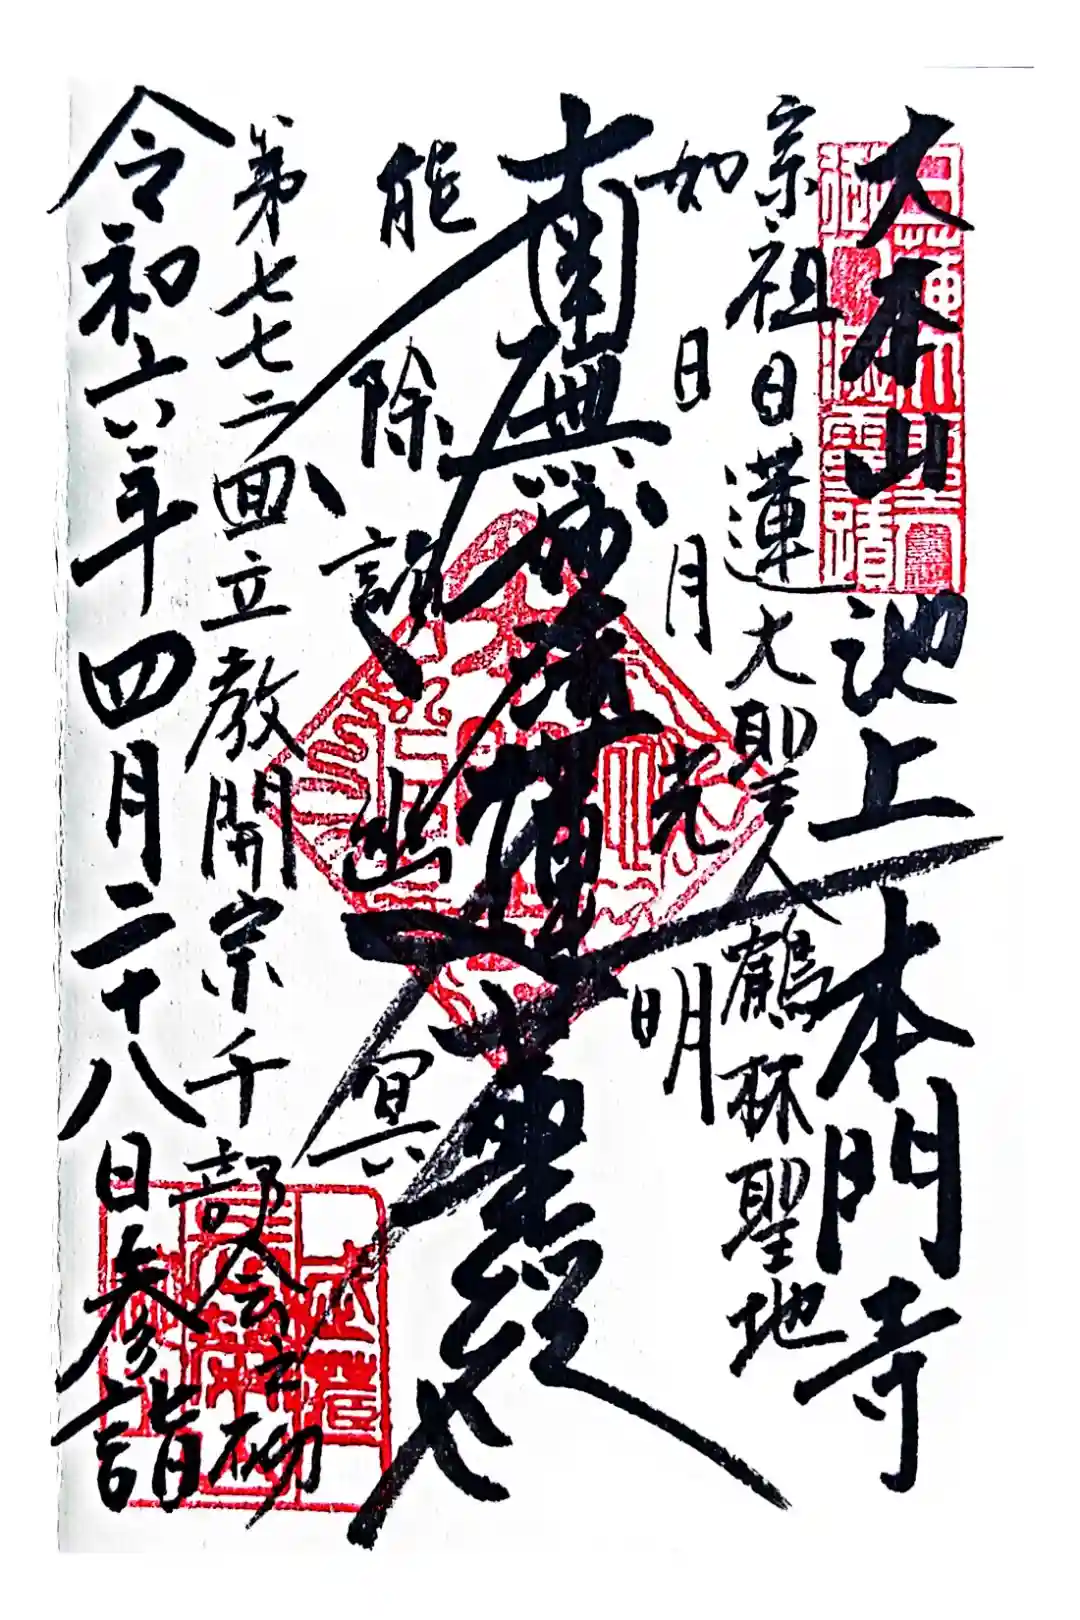 大本山 池上本門寺
宗祖日蓮大聖人鶴林聖地
如日月光明
南無妙法蓮華経
能除諸幽冥
第七七二回立教開宗千部会之砌
令和六年四月二十八日参詣
日蓮大聖人
御入滅霊跡